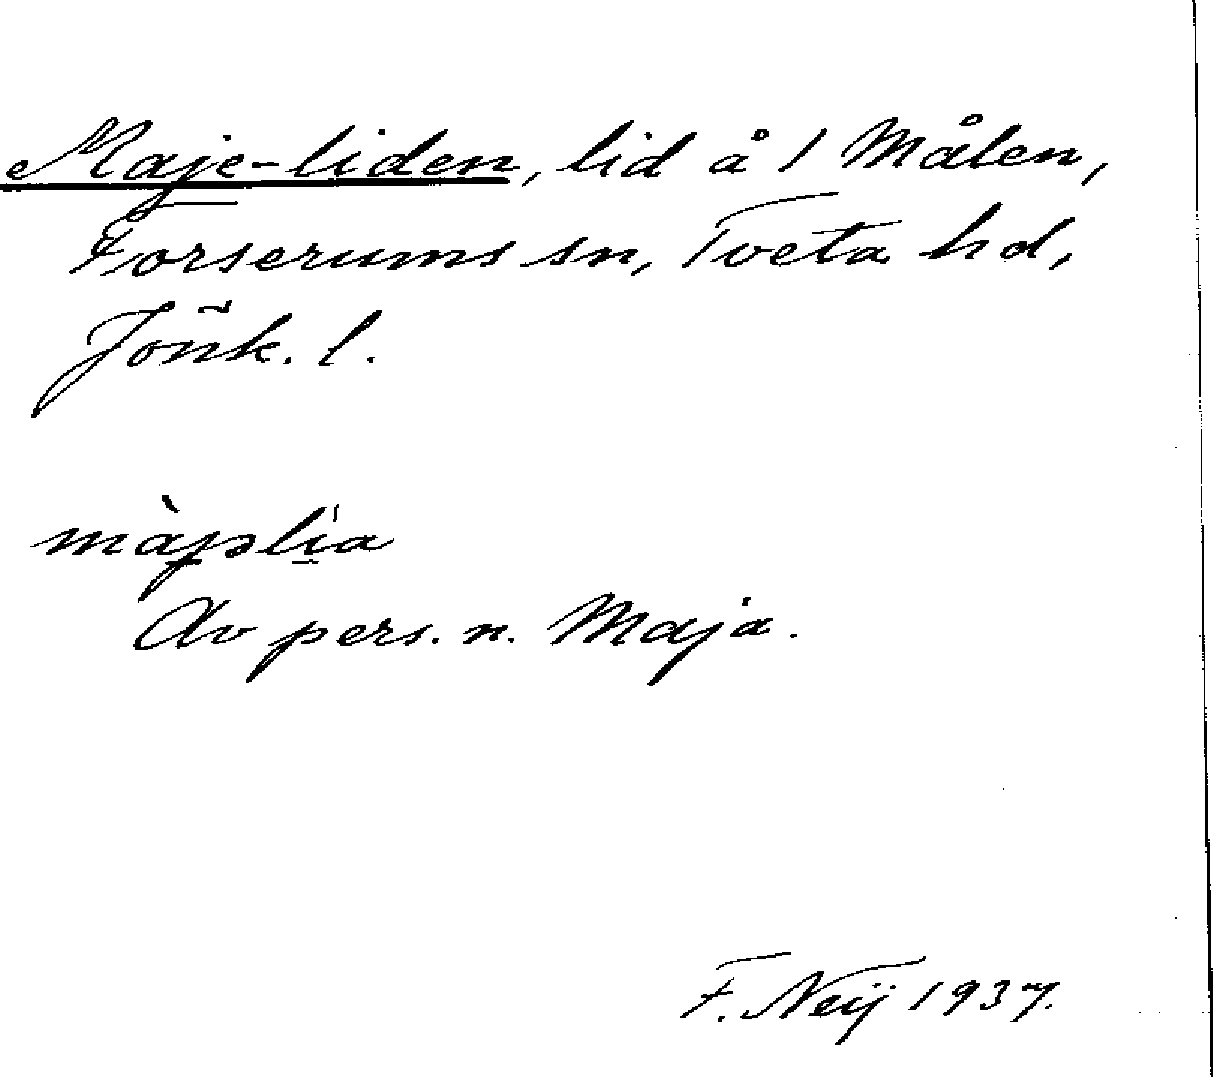 Maje-liden, lid å 1 Målen,
Forserums sn, Tveta hd,
Jönk. l.
màjəli̇̀a
Av pers. n. Maja.
F. Neij 1937.